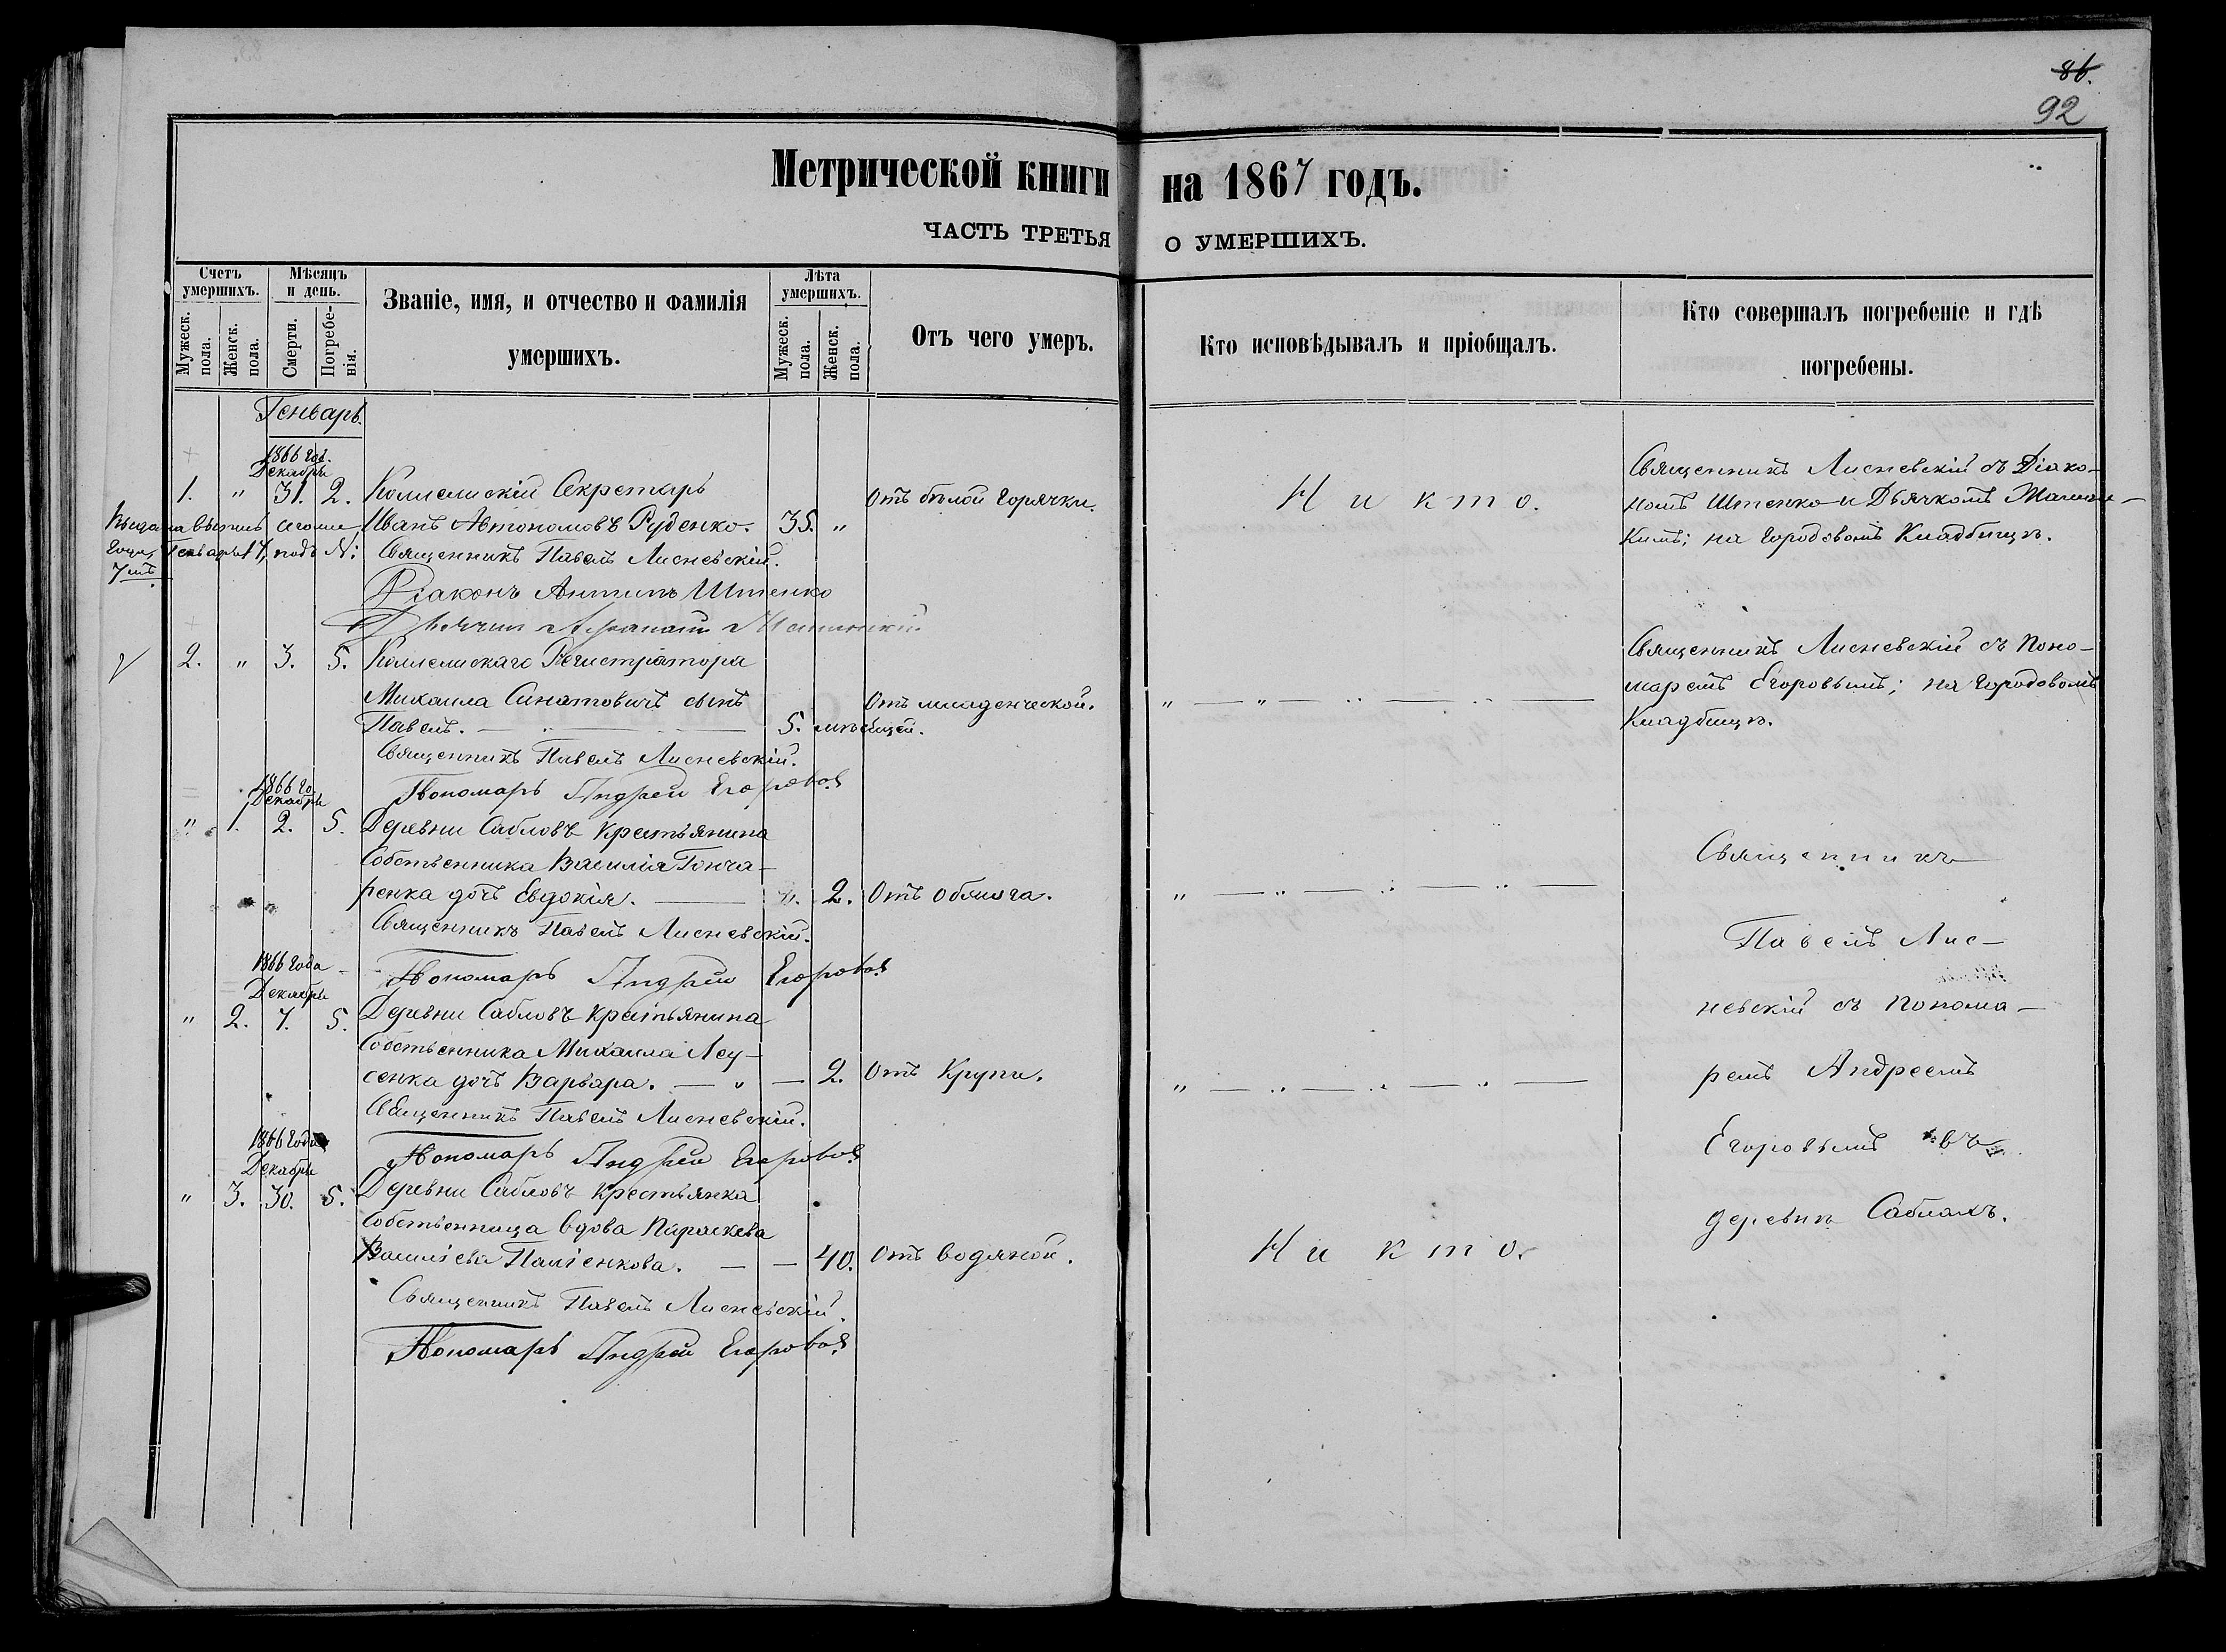 86.
92
Метрической книги на 1867 годъ.
ЧАСТЬ ТРЕТЬЯ О УМЕРШИХЪ.
Счетъ умершихъ.
Мужеск. пола.
Женск. пола.
Мѣсяцъ и день.
Смерти.
Погребенія.
Званіе, имя, и отчество и фамилія
умершихъ.
Лѣта умершихъ.
Мужеск. пола.
Женск. пола.
Отъ чего умеръ.
Кто исповѣдывалъ и пріобщалъ.
Кто совершалъ погребеніе и гдѣ
погребены.
Генварь.
1866 год.
Декабря
1. " 31. 2. Коллежскій Секретарь
Иванъ Автономовъ Руденко. 35. "
Отъ бѣлой горячки.
Никто.
Священникъ Лисневскій съ Діако-
номъ Штенко и Дьячкомъ
на городовомъ кладбищѣ.
Генваря 17, подъ №:
7мъ
Священникъ Павелъ Лисневскій.
Діаконъ Антипъ Штенко
2. " 3. 5. Коллежскаго Регистратора
Михаила сынъ
Павелъ. 5. мѣсяцей.
Отъ младенческой.
Священникъ Лисневскій съ Поно-
маремъ Егоровымъ; на городовомъ
кладбищѣ.
Священникъ Павелъ Лисневскій.
Пономарь Андрей Егоровъ
1866 го.
Декабря
" 1. 2. 5. Деревни Сабловъ крестьянина
собственника Василія Гонча-
ренка дочь Евдокія. 2. Отъ обжога.
Священникъ Павелъ Лисневскій.
Пономарь Андрей Егоровъ
1866 года
Декабря
" 2. 7. 5. Деревни Сабловъ крестьянина
собственника Михаила Лсу-
сенка дочь Варвара. 2. Отъ крупи.
Священникъ Павелъ Лисневскій.
Пономарь Андрей Егоровъ
1866 года
Декабря
" 3. 30. 5. Деревни Сабловъ крестьянка
собственница вдова Параскева
Василіева Паліенкова. 40. Отъ водяной.
Никто.
Священникъ
Павелъ Лис-
невскій съ Понома-
ремъ Андреемъ
Егоровымъ въ
деревнѣ Саблахъ.
Священникъ Павелъ Лисневскій.
Пономарь Андрей Егоровъ